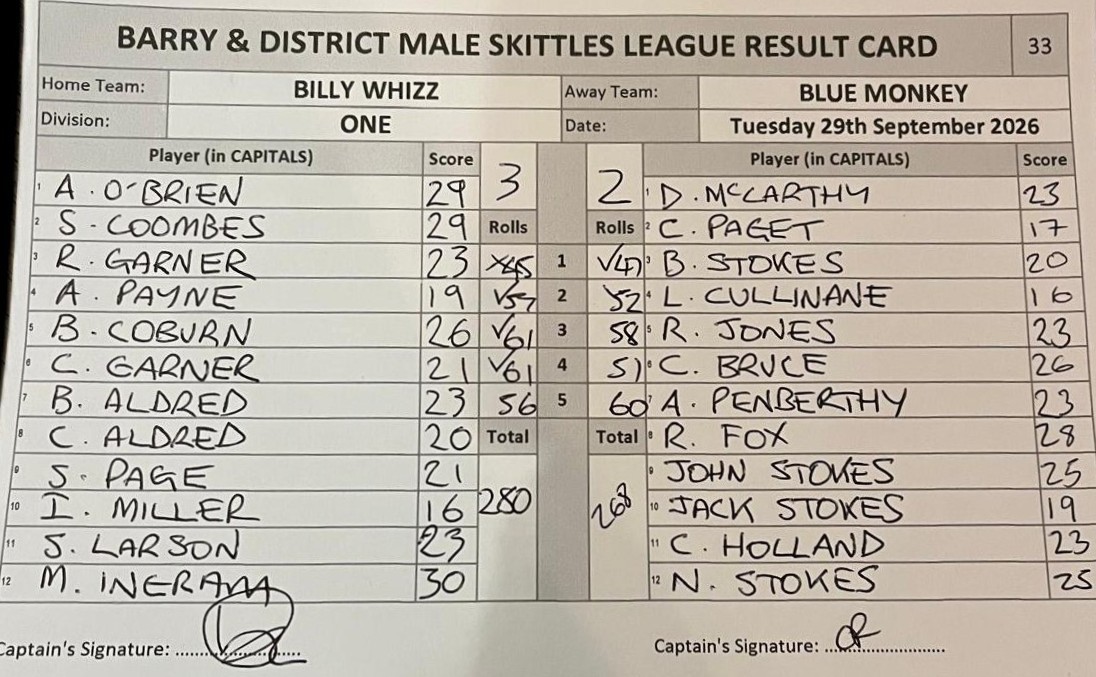 BARRY & DISTRICT MALE SKITTLES LEAGUE RESULT CARD 33
Home Team: BILLY WHIZZ Away Team: BLUE MONKEY
Division: ONE Date: Tuesday 29th September 2026
Player (in CAPITALS) Score 3 2 Player (in CAPITALS) Score
1 A. O'BRIEN 29 1 D. McCARTHY 23
2 S. COOMBES 29 Rolls Rolls 2 C. PAGET 17
3 R. GARNER 23 x45 1 √47 3 B. STOKES 20
4 A. PAYNE 19 √57 2 52 4 L. CULLINANE 16
5 B. COBURN 26 √61 3 58 5 R. JONES 23
6 C. GARNER 21 √61 4 51 6 C. BRUCE 26
7 B. ALDRED 23 56 5 60 7 A. PENBERTHY 23
8 C. ALDRED 20 Total Total 8 R. FOX 28
9 S. PAGE 21 280 268 9 JOHN STOKES 25
10 I. MILLER 16 10 JACK STOKES 19
11 J. LARSON 23 11 C. HOLLAND 23
12 M. INGRAM 30 12 N. STOKES 25
Captain's Signature: Captain's Signature: